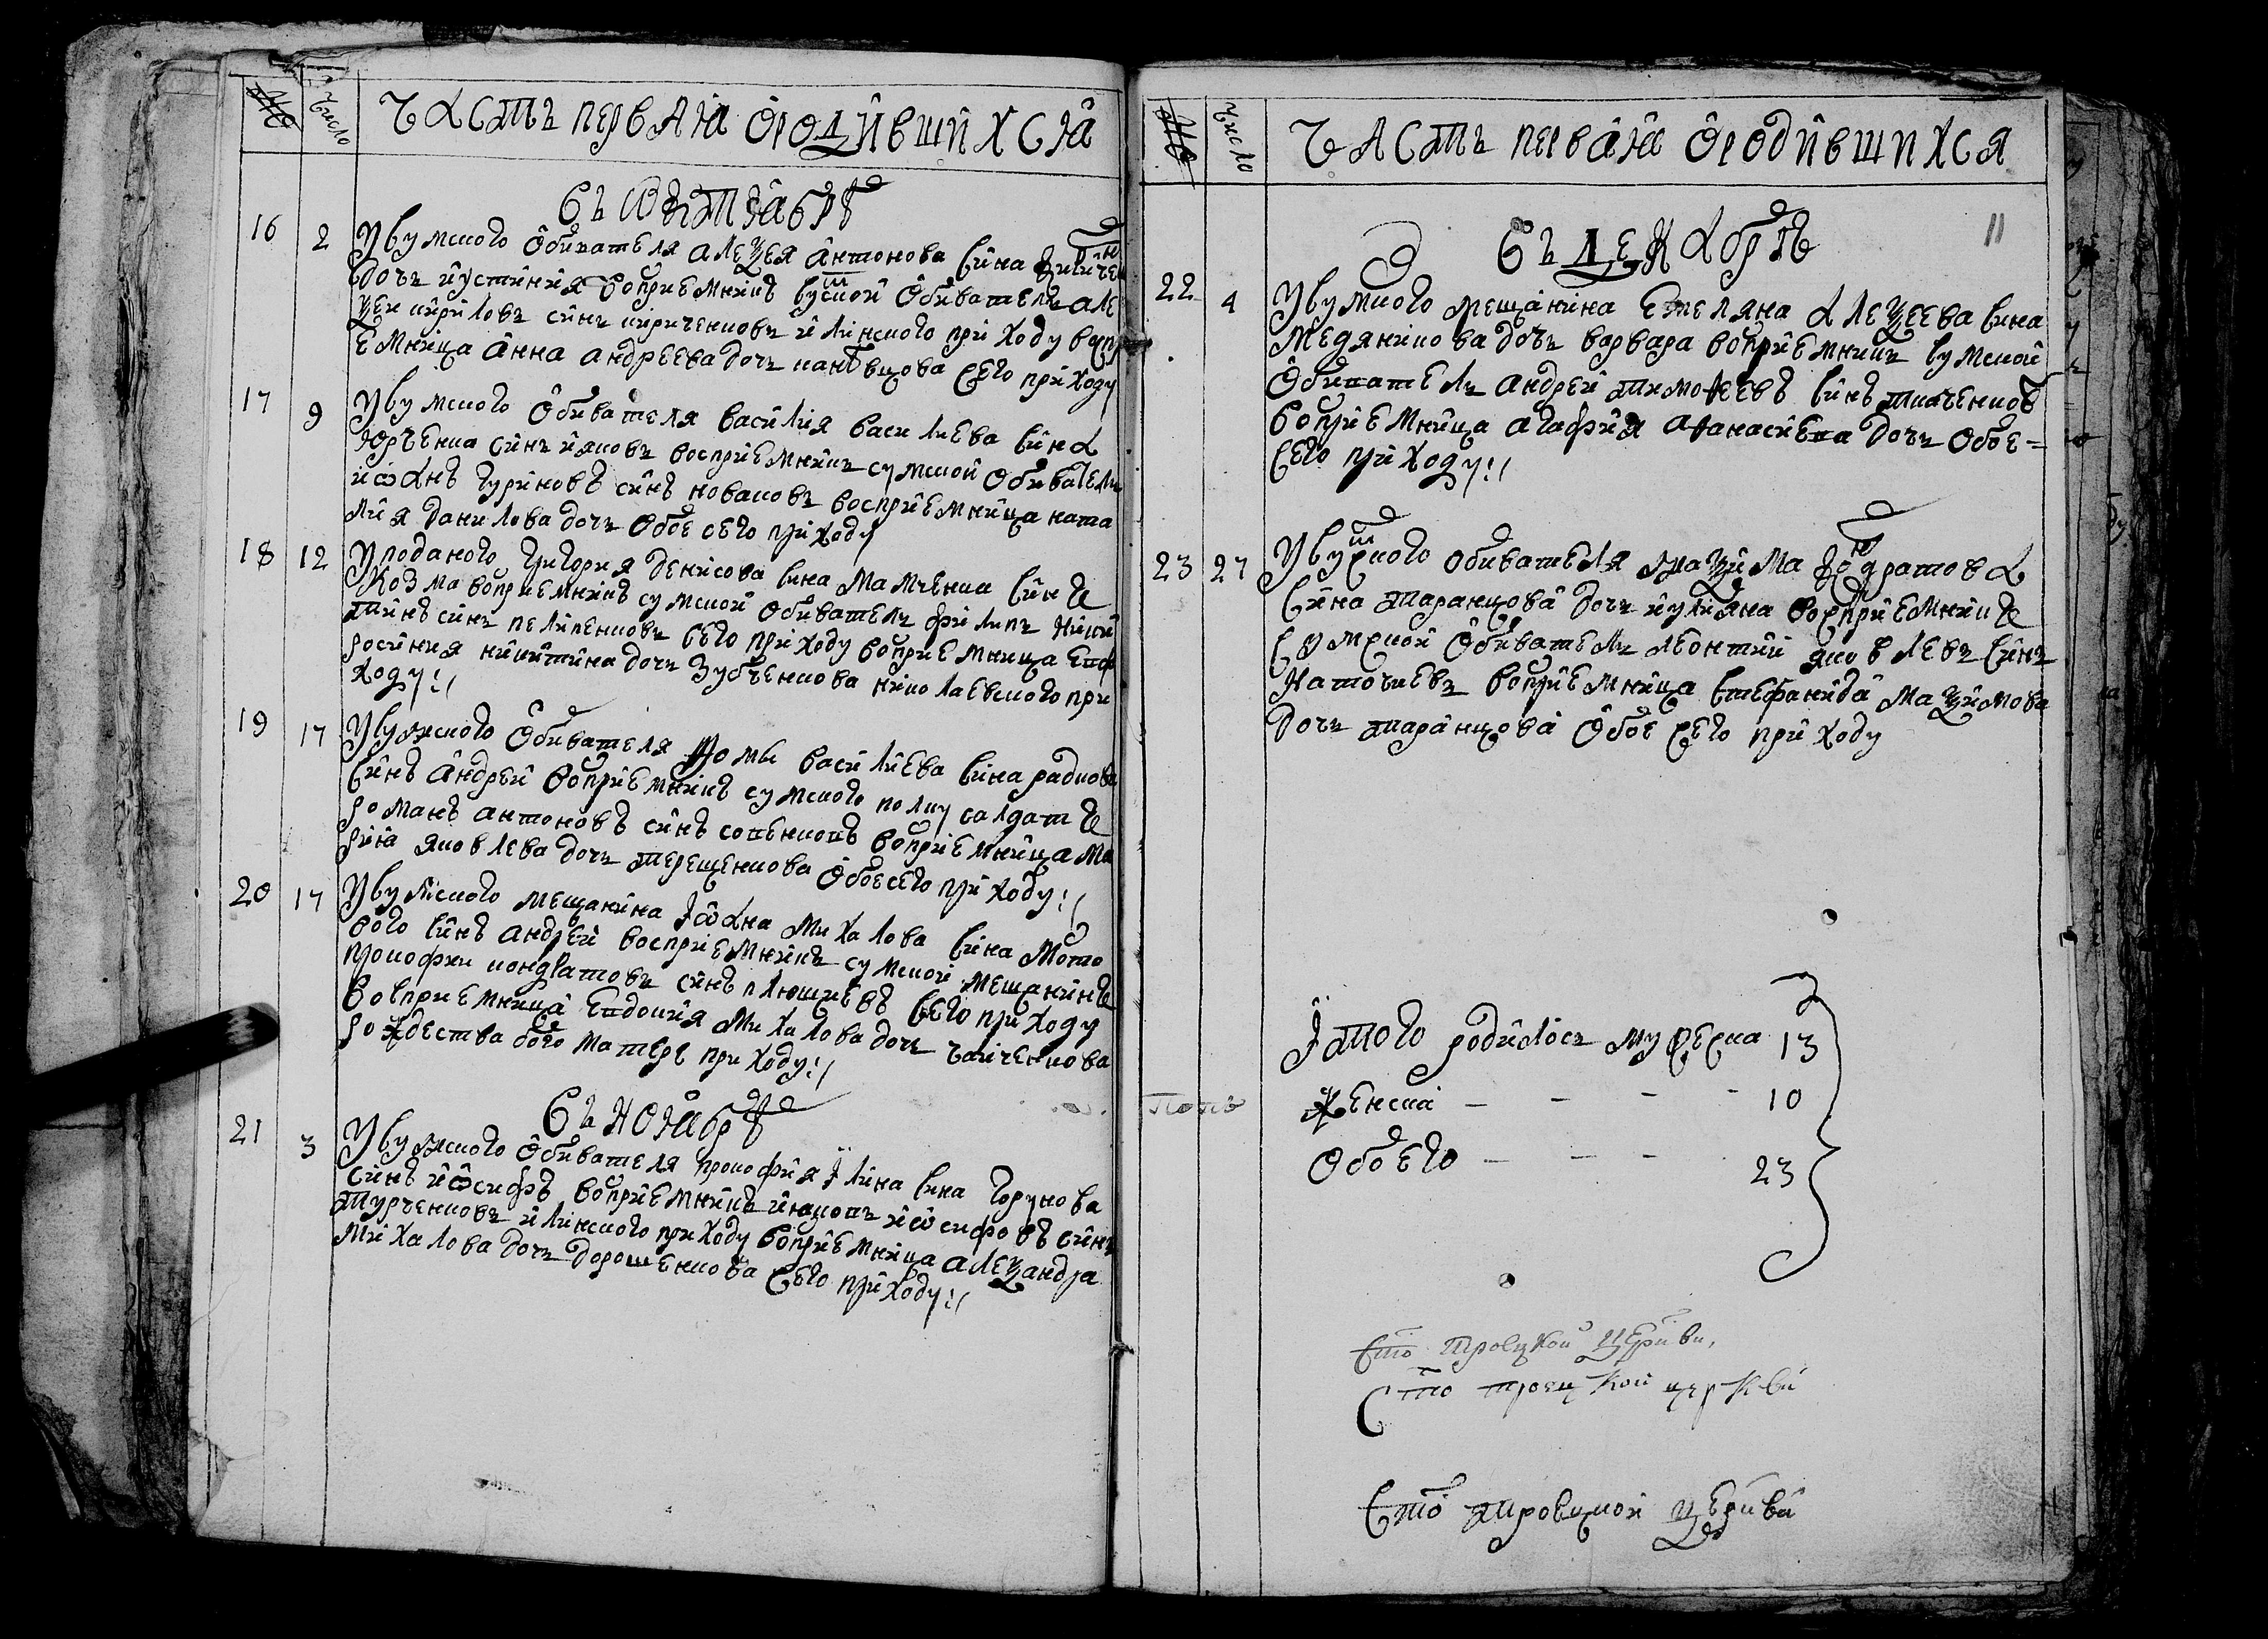 № число Часть первая ѡродившихся
въ октябрѣ
16 2 У сумского обивателя алеѯея антонова сина
дочь иустиния восприемникъ сумской обиватель але
ѯеи кириловъ синъ кириченковъ илинского приходу воспри
емница анна андреева дочь сего приходу
17 9 У сумского обивателя василия василиева сина
юрченка синъияковъ восприемникъ сумской обиватель
иѡанъ гуриновъ синъ новаковъ восприемница ната
лия данилова дочь обое сего приходу
18 12 У поданого григория денисова сина мамченка синъ
козма восприемникъ сумской обиватель филипъ ники
тинъ синъ пелипенковъ сего приходу восприемница евф
росиния никитина дочь зубченкова николаевского при
ходу
19 17 У сумского обивателя ѳомы василиева сина радкова
синъ андрей восприемникъ сумского полку салдатъ
романъ антоновъ синъ сопенковъ восприемница ма
рия яковлева дочь терещенкова обое сего приходу
20 17 У сумского мещанина Іѡана михалова сина мото
вого синъ андрей восприемникъ сумской мещанинъ
прокофии кондратовъ синъ плющиевъ сего приходу
восприемница евдокия михалова дочь чаиченкова
рождества бого матере приходу
въ ноябрѣ
21 3 У сумского обивателя прокофия Ілина сина горунова
синъ иѡсифъ восприемникъ иѡсифовъ синъ
турченковъ илинского приходу восприемница алеѯандра
михалова дочь дорошенкова сего приходу
№ число Часть первая ѡродившихся
11
въ декабрѣ
22 4 У сумского мещанина емеляна алеѯеева сина
медяникова дочь варвара восприемникъ сумской
обиватель андрей тимоѳеевъ синъ ткаченковъ
восприемница агафия аѳанасиева дочь обое
сего приходу
23 27 У сумского обивателя маѯима кондратова
сина таранцова дочь иулияна восприемникъ
сумской обиватель леонтий яковлевъ синъ
наточиевъ восприемница стефанида маѯимова
дочь таранцова обое сего приходу
Ітого родилось мужеска 13
женска – – – – 10
обоего – – – 23
попъ
Сто троецкой церкви,
Сто троецкой церкви
Сто троецкой церкви